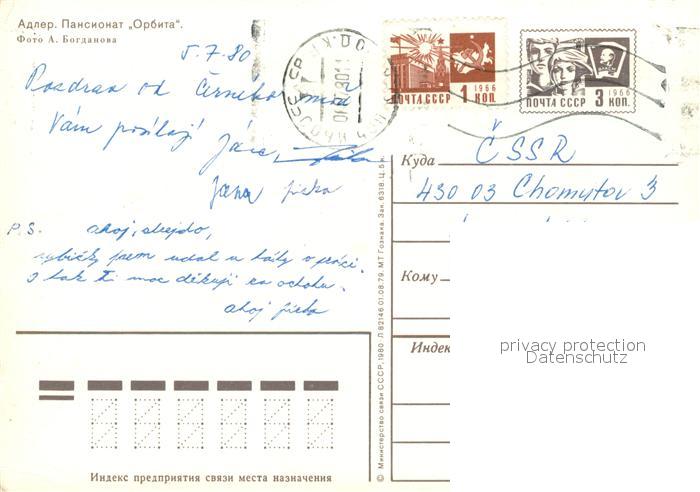 Адлер. Пансионат „Орбита".
Фото А. Богданова
5.7.80
Pozdrav od Černého moře
Vám posílají Jára,
Jana Jirka
P.S. ahoj,
jsem udal u táty v práci.
a tak Ti moc děkuji za ochotu.
ahoj Jirka
1966
ПОЧТА СССР 1 КОП.
1966
ПОЧТА СССР 3 КОП.
Куда ČSSR
430 03 Chomutov 3
Кому
Индек
privacy protection
Datenschutz
Индекс предприятия связи места назначения
© Министерство связи СССР, 1980 Л 82146 01.08.79. МТ Гознака. Зак. 6318. Ц. 5 к.